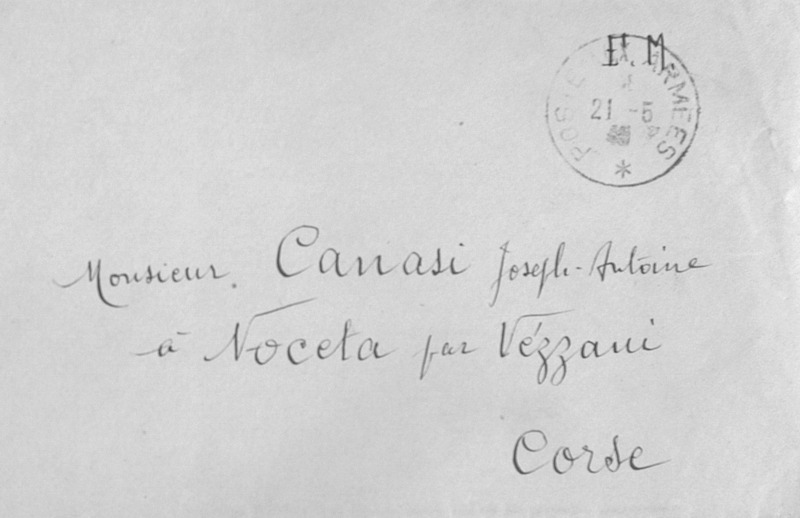 F. M.
POSTE AUX ARMEES
21 -5
*
Monsieur. Canasi Joseph-Antoine
à Noceta par Vézzani
Corse